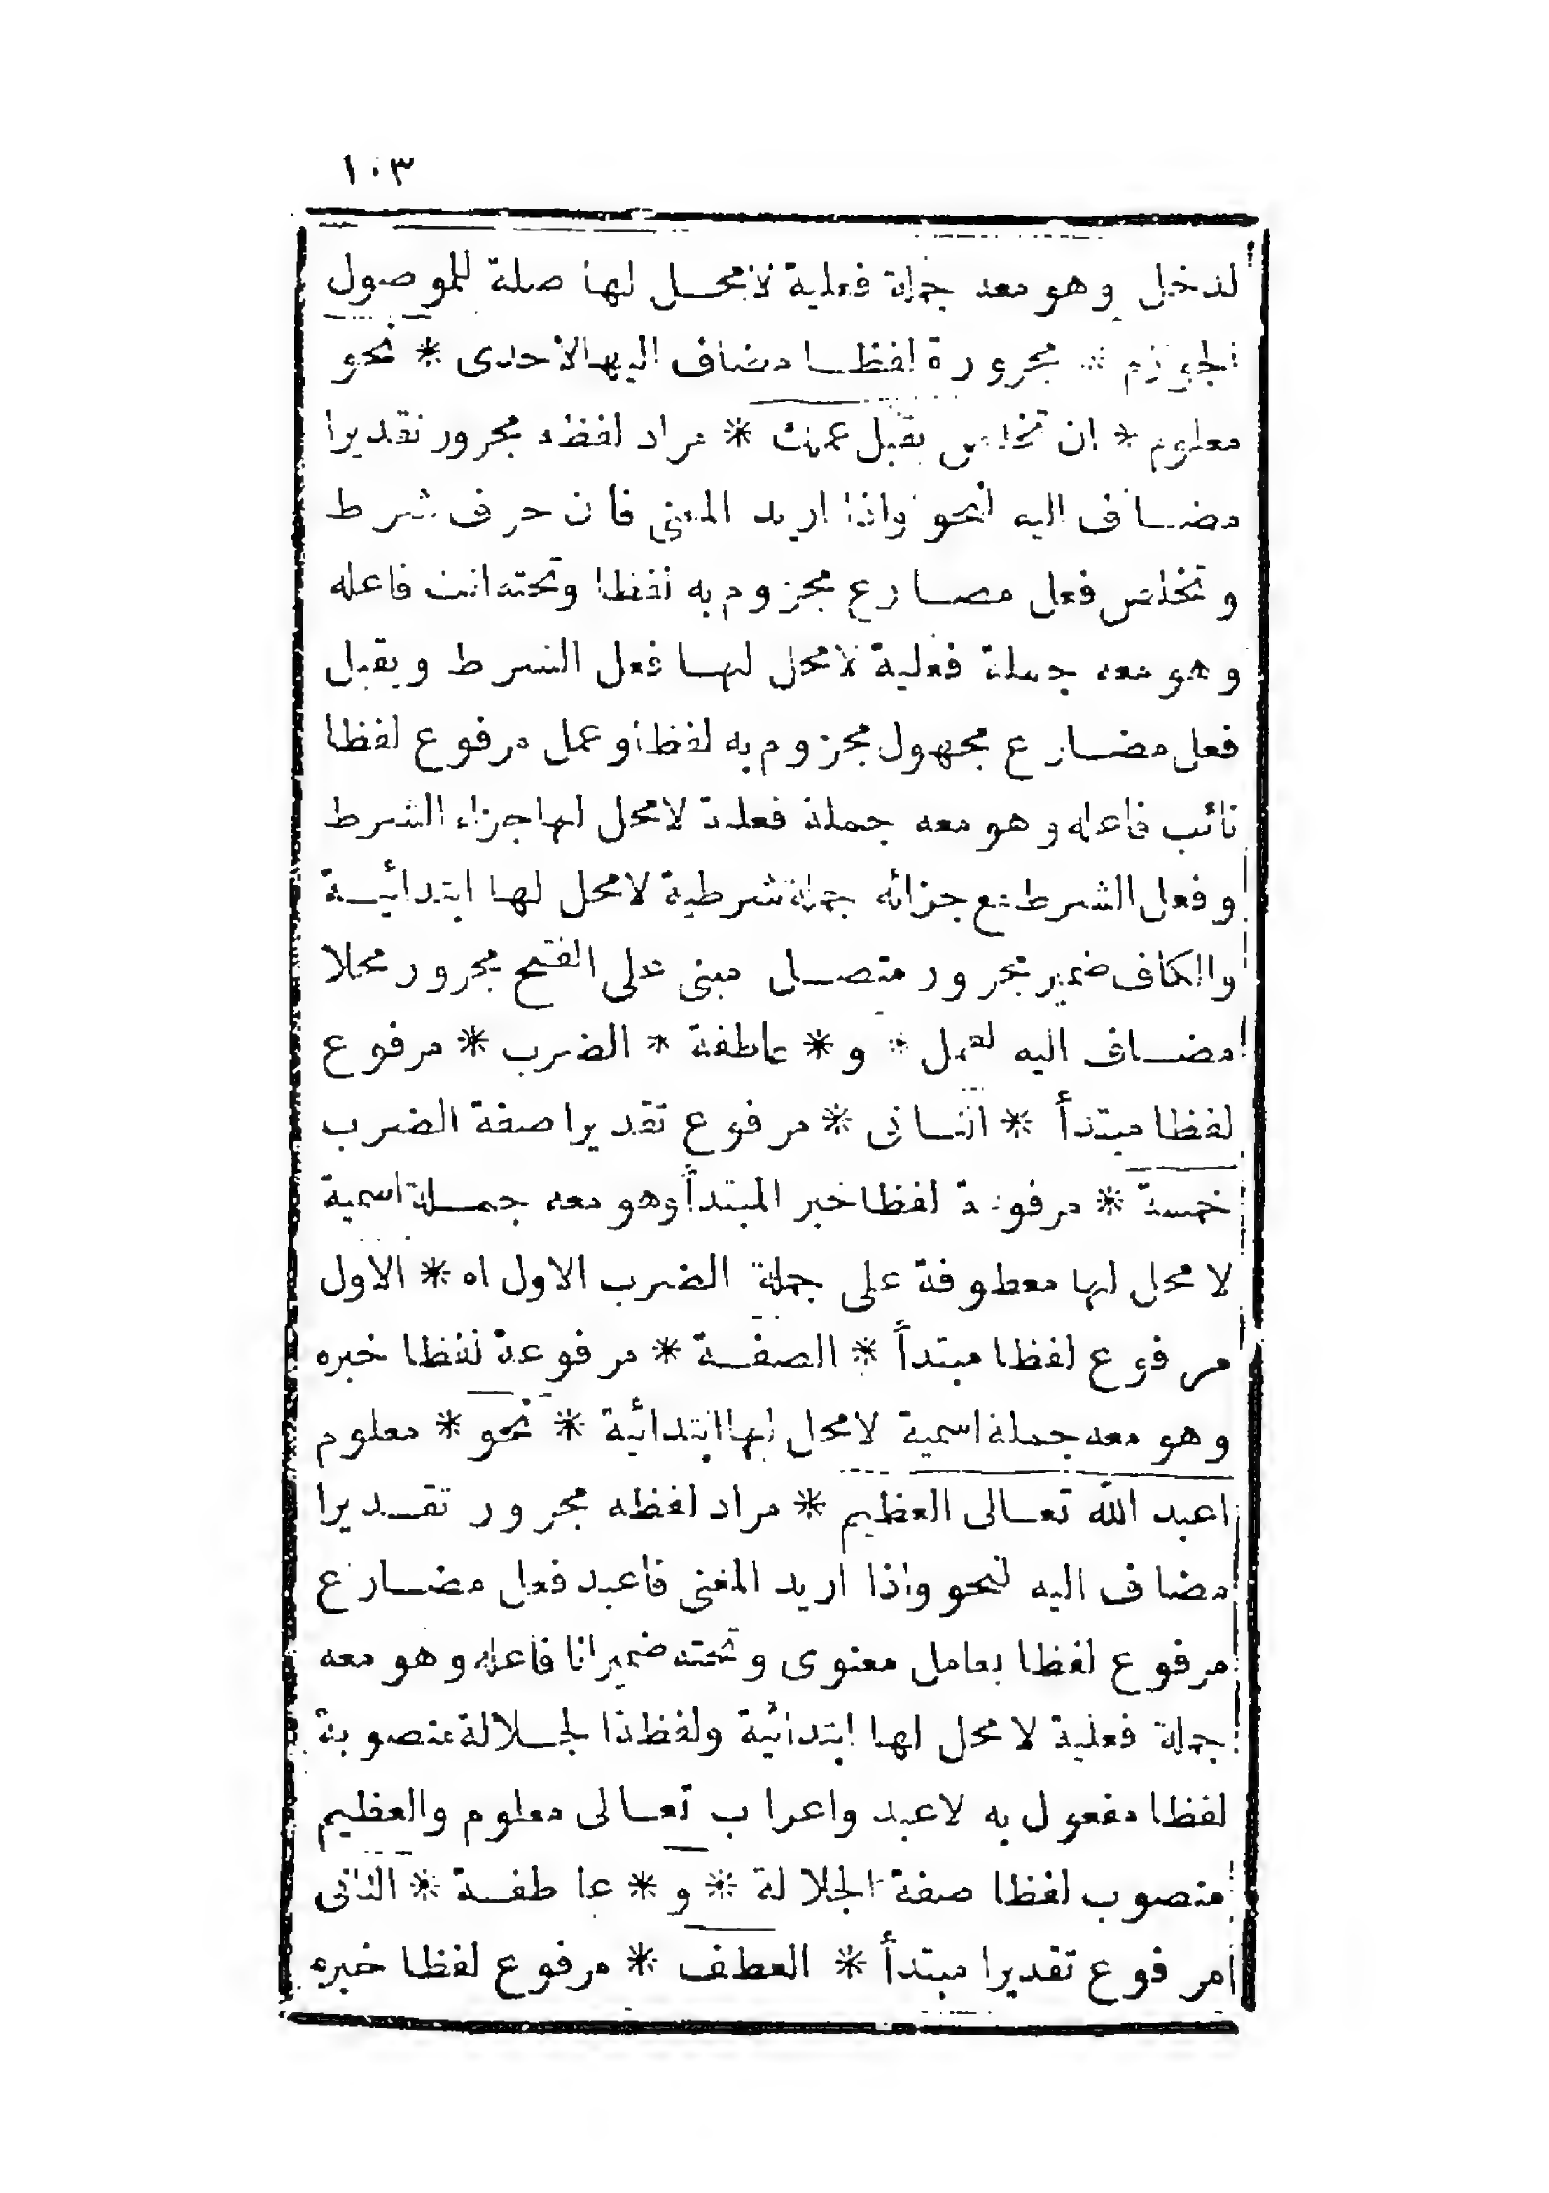 ١٠٣
لدخل وهو معه جملة فعلية لامحل لها صلة للموصول
الجوازم * مجرورة لفظا مضاف اليها لاحدى * نحو
معلوم * ان تخلص يقبل عملك * مراد لفظه مجرور تقديرا
مضاف اليه لنحو واذا اريد المعنى فان حرف شرط
وتخلص فعل مضارع مجزوم به لفظا وتحته انت فاعله
وهو معه جملة فعلية لامحل لها فعل الشرط ويقبل
فعل مضارع مجهول مجزوم به لفظا وعمل مرفوع لفظا
نائب فاعله وهو معه جملة فعلية لامحل لها جزاء الشرط
وفعل الشرط مع جزائه جملة شرطية لامحل لها ابتدائية
والكاف ضمير مجرور متصل مبنى على الفتح مجرور محلا
مضاف اليه لعمل * و * عاطفة * الضرب * مرفوع
لفظا مبتدأ * الثانى * مرفوع تقديرا صفة الضرب
خمسة * مرفوعة لفظا خبر المبتدأ وهو معه جملة اسمية
لا محل لها معطوفة على جملة الضرب الاول اه * الاول
مرفوع لفظا مبتدأ * الصفة * مرفوعة لفظا خبره
وهو معه جملة اسمية لامحل لها ابتدائية * نحو * معلوم
اعبد الله تعالى العظيم * مراد لفظه مجرور تقديرا
مضاف اليه لنحو واذا اريد المعنى فاعبد فعل مضارع
مرفوع لفظا بعامل معنوى وتحته ضمير انا فاعله وهو معه
جملة فعلية لا محل لها ابتدائية ولفظة الجلالة منصوبة
لفظا مفعول به لاعبد واعراب تعالى معلوم والعظيم
منصوب لفظا صفة الجلالة * و * عاطفة * الثانى
مرفوع تقديرا مبتدأ * العطف * مرفوع لفظا خبره